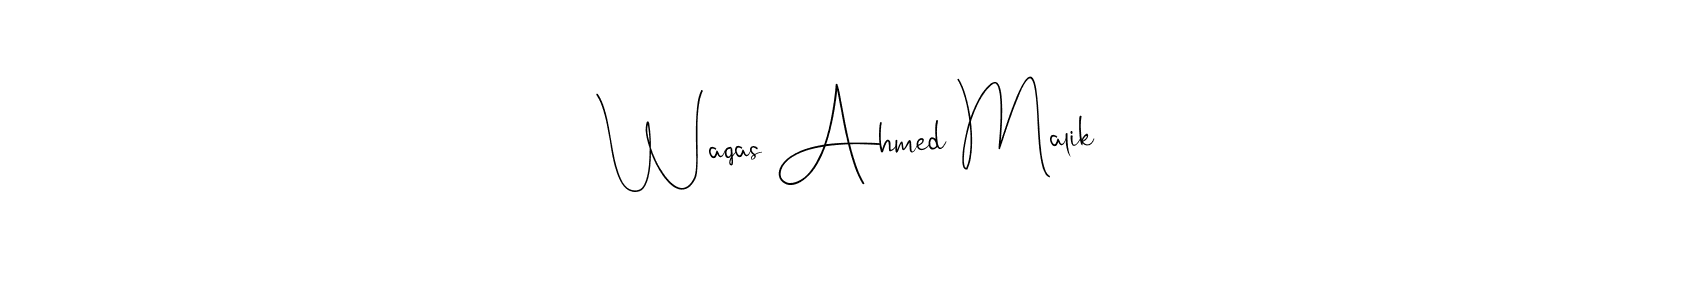 Waqas Ahmed Malik